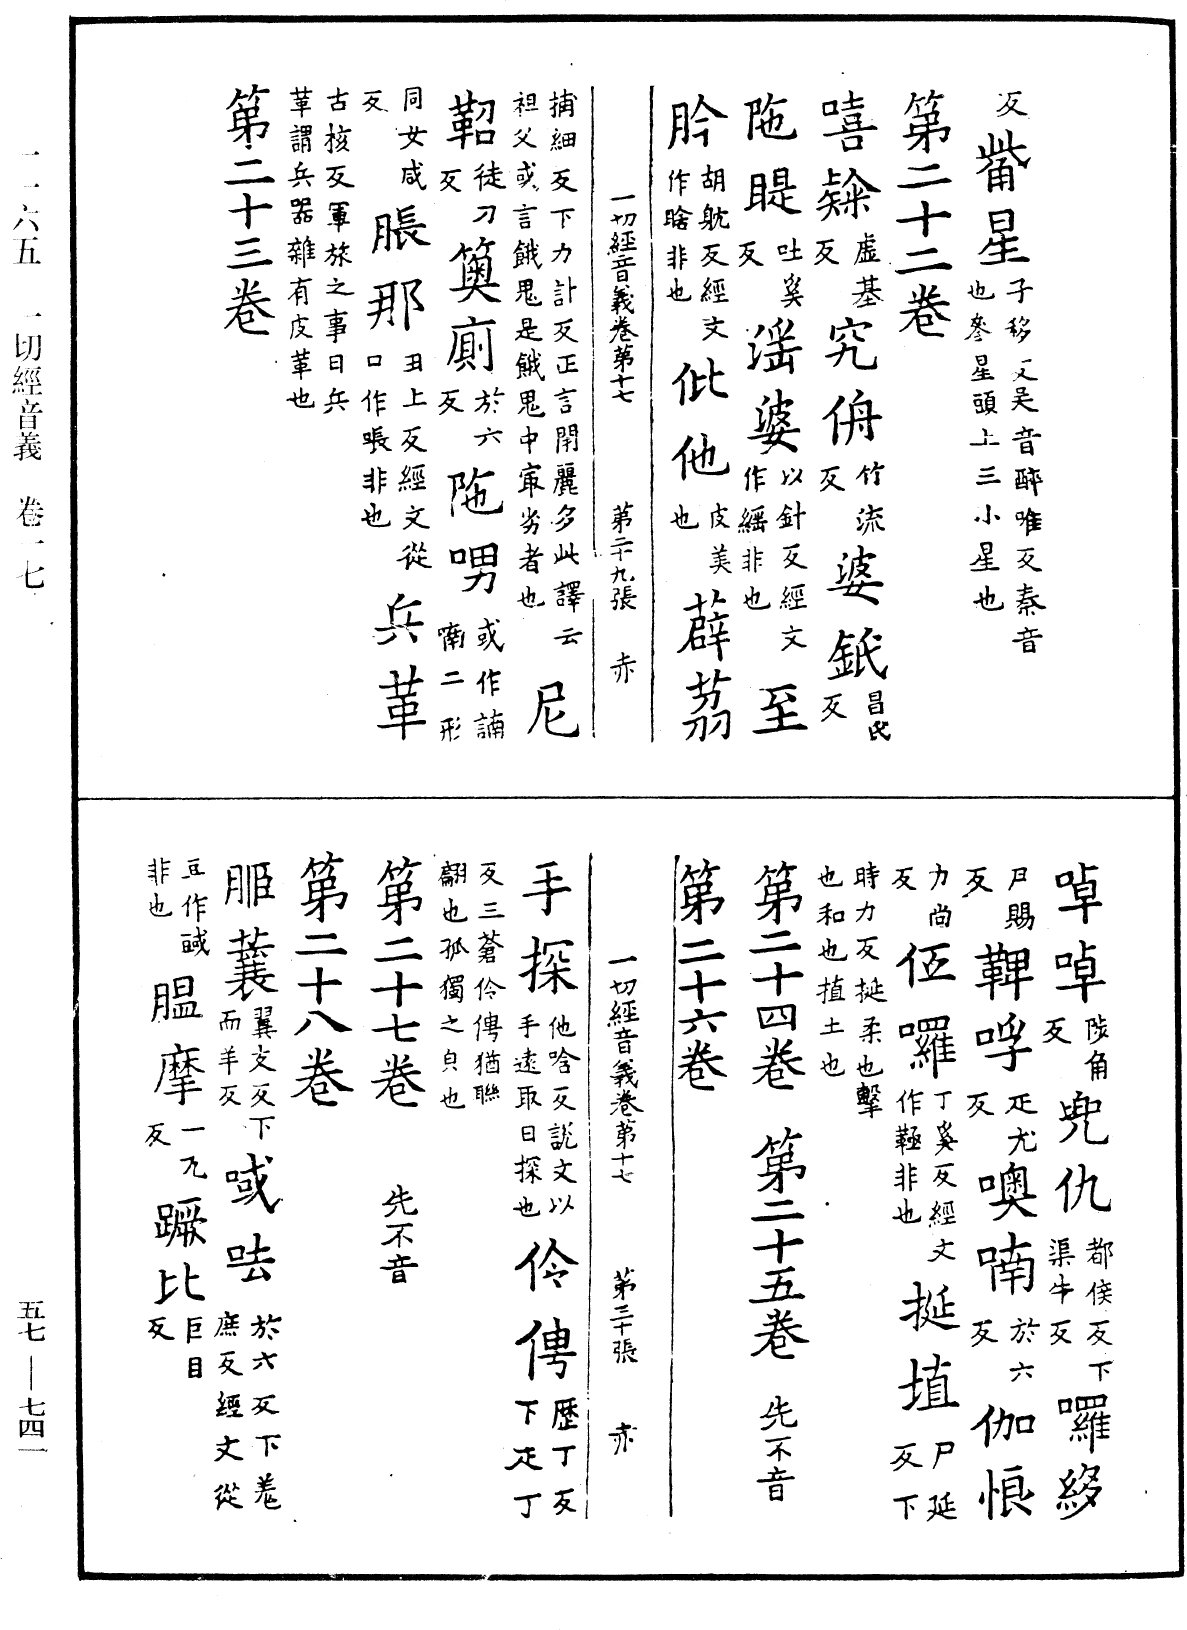 反觜星子移反吳音醉唯反秦音
也參星頭上三小星也
第二十二卷
嘻㰠虛基反究侜竹流反婆䤠昌氏反
陁睼吐奚反滛婆以針反經文作䌛非也至
肣胡躭反經文作晗非也仳他皮美也薜荔
一切經音義卷第十七 第二十九張 赤
捕細反下力計反正言閇麗多此譯云
祖父或言餓鬼是餓鬼中㝡劣者也尼
鞀徒刀反䉛廁於六反陁喟或作諵喃二形
同女咸反脹那丑上反經文從口作啺非也兵革
古核反軍旅之事曰兵
革謂兵器雜有皮革也
第二十三卷
啅啅陟角反兜仇都侯反下渠牛反囉䋾
尸賜反鞞呼疋尤反噢喃於六反伽悢
力尚反仾囉丁奚反經文作䩞非也挻埴尸延反下
時力反挻柔也擊
也和也埴土也
第二十四卷 第二十五卷 先不音
第二十六卷
一切經音義卷第十七 第三十張 赤
手探他唅反說文以手遠取曰探也伶俜歷丁反下疋丁
反三蒼伶俜猶聯
翩也孤獨之皃也
第二十七卷 先不音
第二十八卷
䏰蘘翼之反下而羊反㖪呿於六反下羌庶反經文從
豆作䜴非也腽摩一兀反蹶比巨目反
二一六五 一切經音義 卷一七
五七—七四一